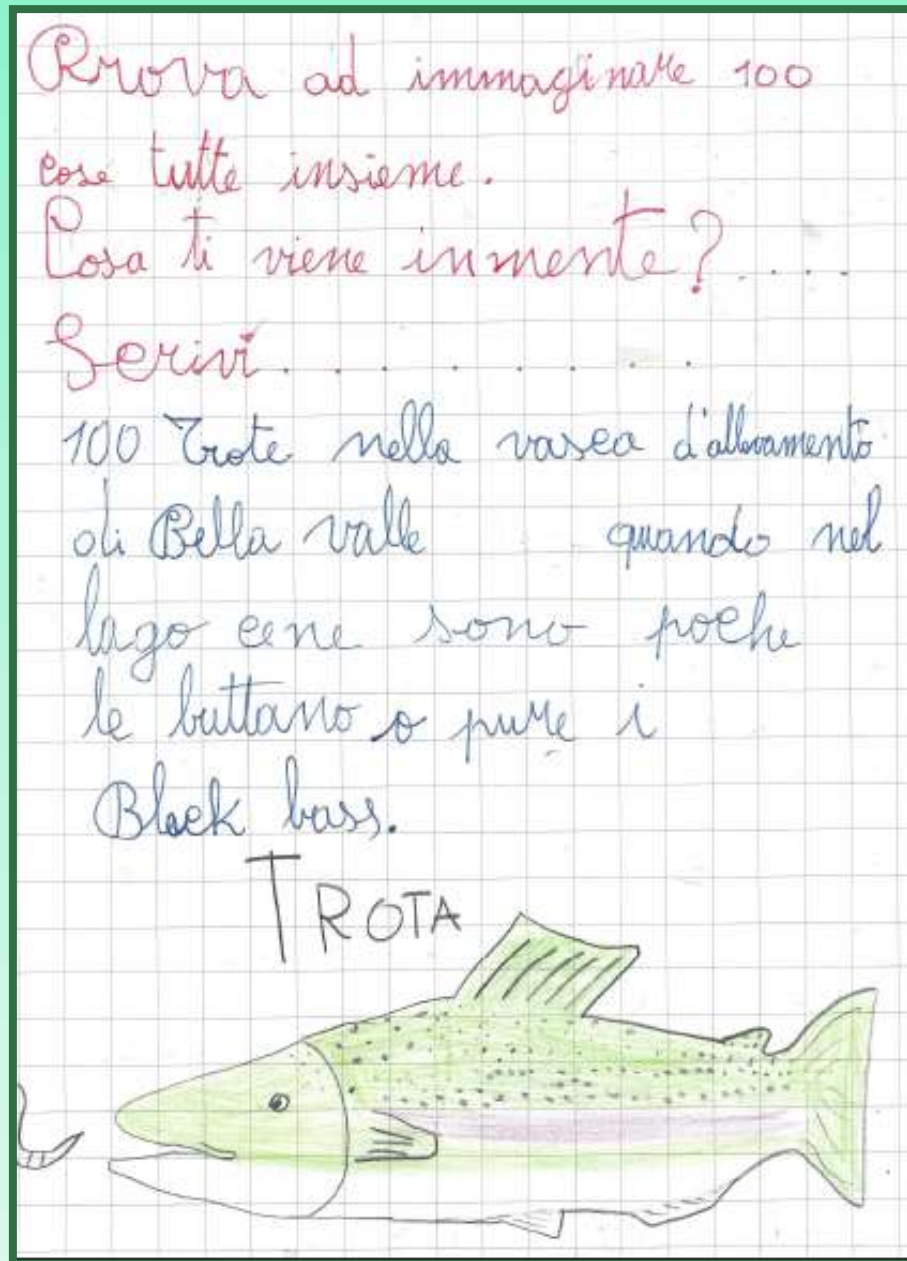 Prova ad immaginare 100
cose tutte insieme.
Cosa ti viene inmente?.....
Scrivi..........
100 Trote nella vasca d'allevamento
di Bella valle quando nel
lago cene sono poche
le buttano o pure i
Black bass.
TROTA